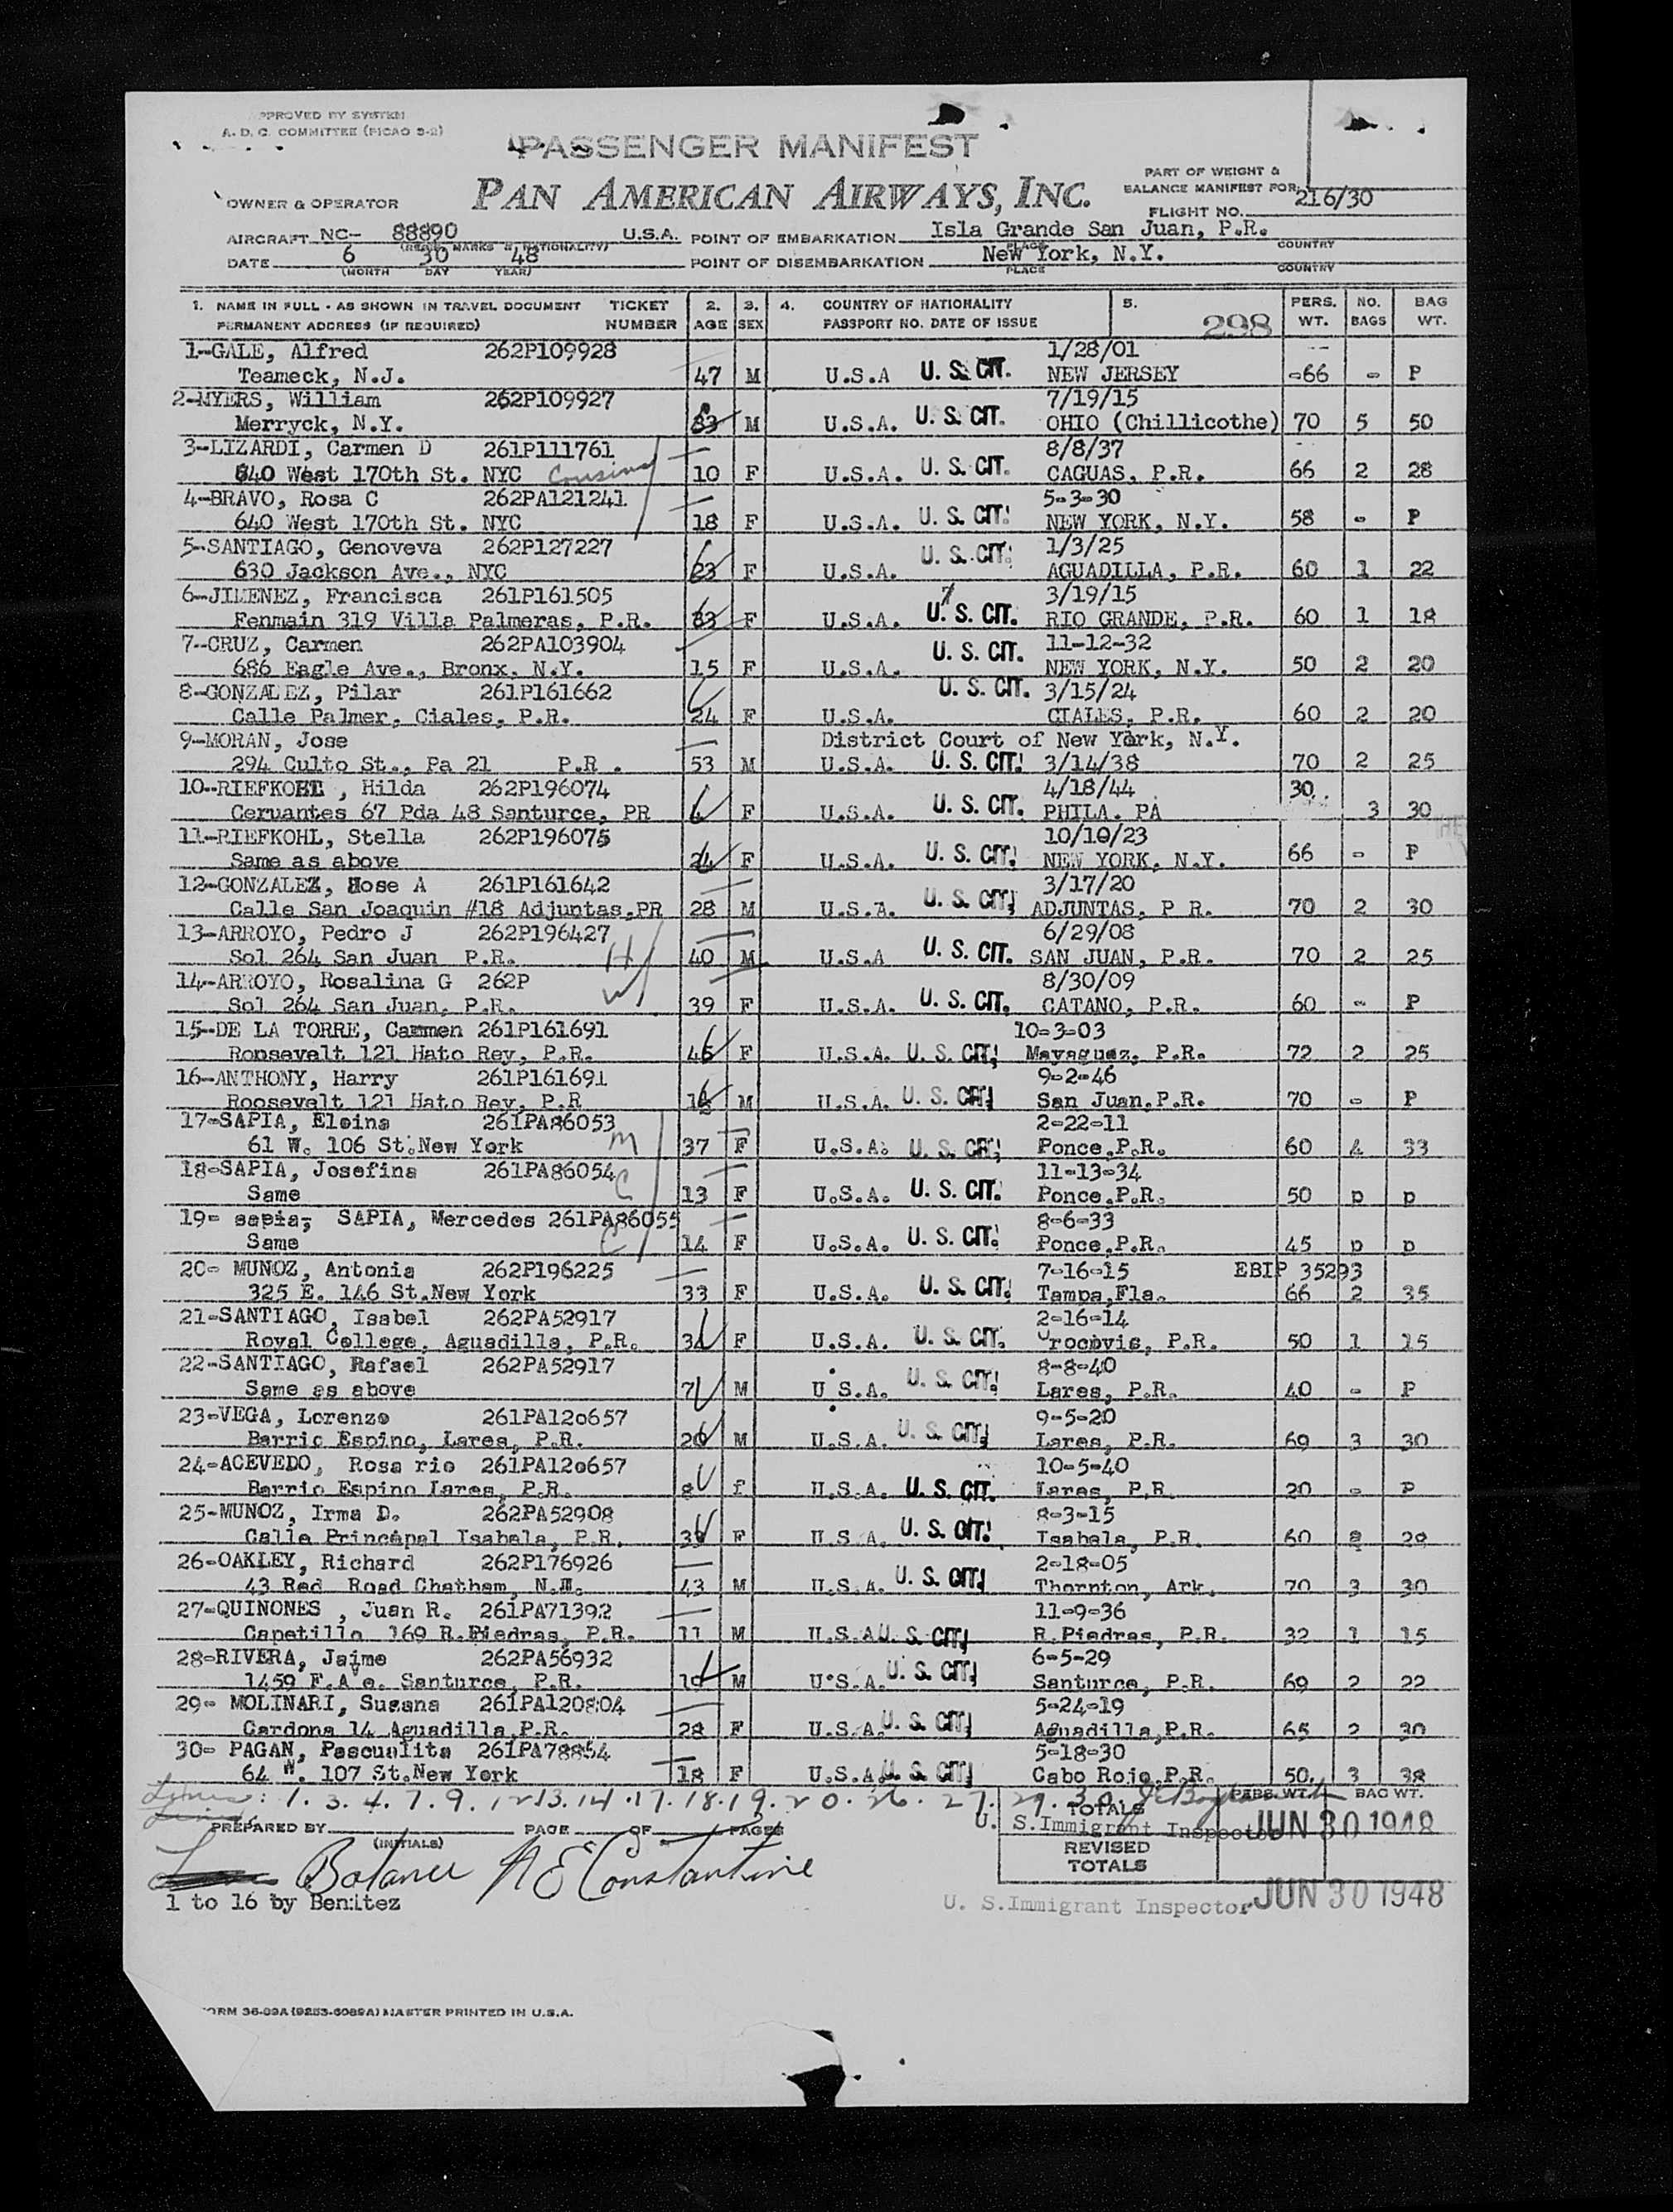 APPROVED BY SYSTEM
A. D. C. COMMITTEE (PICAO S-2)
PASSENGER MANIFEST
PAN AMERICAN AIRWAYS, INC.
OWNER & OPERATOR
PART OF WEIGHT &
BALANCE MANIFEST FOR
FLIGHT NO. 216/30
AIRCRAFT NC- 88890 U.S.A. POINT OF EMBARKATION Isla Grande San Juan, P.R.
(REGIS. MARKS & NATIONALITY) PLACE COUNTRY
DATE 6 30 48 POINT OF DISEMBARKATION New York, N.Y.
(MONTH DAY YEAR) PLACE COUNTRY
1. NAME IN FULL - AS SHOWN IN TRAVEL DOCUMENT TICKET 2. 3. 4. COUNTRY OF NATIONALITY 5. PERS. NO. BAG
PERMANENT ADDRESS (IF REQUIRED) NUMBER AGE SEX PASSPORT NO. DATE OF ISSUE 298 WT. BAGS WT.
1--GALE, Alfred 262P109928 1/28/01 --
Teameck, N.J. 47 M U.S.A U. S. CIT. NEW JERSEY -66 - P
2-MYERS, William 262P109927 7/19/15
Merryck, N.Y. 33 M U.S.A. U. S. CIT. OHIO (Chillicothe) 70 5 50
3-LIZARDI, Carmen D 261P111761 8/8/37
640 West 170th St. NYC Cousins 10 F U.S.A. U. S. CIT. CAGUAS, P.R. 66 2 28
4-BRAVO, Rosa C 262PA121241 5-3-30
640 West 170th St. NYC 18 F U.S.A. U. S. CIT. NEW YORK, N.Y. 58 - P
5-SANTIAGO, Genoveva 262P127227 1/3/25
630 Jackson Ave., NYC 23 F U.S.A. U. S. CIT. AGUADILLA, P.R. 60 1 22
6-JIMENEZ, Francisca 261P161505 3/19/15
Fenmain 319 Villa Palmeras, P.R. 33 F U.S.A. U. S. CIT. RIO GRANDE, P.R. 60 1 18
7--CRUZ, Carmen 262PA103904 11-12-32
686 Eagle Ave., Bronx, N.Y. 15 F U.S.A. U. S. CIT. NEW YORK, N.Y. 50 2 20
8-GONZALEZ, Pilar 261P161662 3/15/24
Calle Palmer, Ciales, P.R. 24 F U.S.A. U. S. CIT. CIALES, P.R. 60 2 20
9-MORAN, Jose District Court of New York, N.Y.
294 Culto St., Pa 21 P.R. 53 M U.S.A. U. S. CIT. 3/14/38 70 2 25
10--RIEFKOHL, Hilda 262P196074 4/18/44 30
Cervantes 67 Pda 48 Santurce, PR F U.S.A. U. S. CIT. PHILA. PA 3 30
11-RIEFKOHL, Stella 262P196075 10/10/23
Same as above 24 F U.S.A. U. S. CIT. NEW YORK, N.Y. 66 - P
12-GONZALEZ, Jose A 261P161642 3/17/20
Calle San Joaquin #18 Adjuntas,PR 28 M U.S.A. U. S. CIT. ADJUNTAS, P R. 70 2 30
13-ARROYO, Pedro J 262P196427 6/29/08
Sol 264 San Juan P.R. H 40 M U.S.A U. S. CIT. SAN JUAN, P.R. 70 2 25
14-ARROYO, Rosalina G 262P 8/30/09
Sol 264 San Juan, P.R. W 39 F U.S.A. U. S. CIT. CATANO, P.R. 60 - P
15-DE LA TORRE, Carmen 261P161691 10-3-03
Ronsevelt 121 Hato Rey, P.R. 45 F U.S.A. U. S. CIT. Mayaguez, P.R. 72 2 25
16-ANTHONY, Harry 261P161691 9-2-46
Roosevelt 121 Hato Rey, P.R M U.S.A. U. S. CIT. San Juan,P.R. 70 - P
17-SAPIA, Eloina 261PA86053 2-22-11
61 W. 106 St.New York M 37 F U.S.A. U. S. CIT. Ponce,P.R. 60 4 33
18-SAPIA, Josefina 261PA86054 11-13-34
Same C 13 F U.S.A. U. S. CIT. Ponce,P.R. 50 p p
19- sapia, SAPIA, Mercedes 261PA86055 8-6-33
Same C 14 F U.S.A. U. S. CIT. Ponce,P.R. 45 p p
20- MUNOZ, Antonia 262P196225 7-16-15 EBIP 35293
325 E. 146 St.New York 33 F U.S.A. U. S. CIT. Tampa,Fla. 66 2 35
21-SANTIAGO, Isabel 262PA52917 2-16-14
Royal College, Aguadilla, P.R. 34 F U.S.A. U. S. CIT. Orocovis, P.R. 50 1 15
22-SANTIAGO, Rafael 262PA52917 8-8-40
Same as above 7 M U.S.A. U. S. CIT. Lares, P.R. 40 - P
23-VEGA, Lorenzo 261PA120657 9-5-20
Barrio Espino, Lares, P.R. M U.S.A. U. S. CIT. Lares, P.R. 69 3 30
24-ACEVEDO, Rosa rio 261PA120657 10-5-40
Barrio Espino Lares, P.R. 8 f U.S.A. U. S. CIT. Lares, P.R 20 - P
25-MUNOZ, Irma D. 262PA52908 8-3-15
Calle Principal Isabela, P.R. F U.S.A. U. S. CIT. Isabela, P.R 60 28
26-OAKLEY, Richard 262P176926 2-18-05
43 Red Road Chatham, 43 M U.S.A. U. S. CIT. Thornton, Ark. 70 3 30
27-QUINONES , Juan R. 261PA71392 11-9-36
Capetillo 169 R.Piedras, P.R. 11 M U.S.A U. S. CIT. R.Piedras, P.R. 32 1 15
28-RIVERA, Jaime 262PA56932 6-5-29
1459 F.Ave. Santurce, P.R. 19 M U.S.A. U. S. CIT. Santurce, P.R. 69 2 22
29- MOLINARI, Susana 261PA120804 5-24-19
Cardona 14 Aguadilla,P.R. 28 F U.S.A. U. S. CIT. Aguadilla,P.R. 65 2 30
30- PAGAN, Pascualita 261PA78854 5-18-30
64 W. 107 St.New York 18 F U.S.A. U. S. CIT. Cabo Rojo,P.R. 50 3 38
Lines: 1. 3. 4. 7. 9. 12 13. 14. 17. 18. 19. 20. 26. 27. 29. 30.
TOTALS PERS. WT. BAG WT.
PREPARED BY PAGE OF PAGES
(INITIALS)
U. S.Immigrant Inspector JUN 30 1948
REVISED
TOTALS
Balance N E Constantine
1 to 16 by Benitez
U. S.Immigrant Inspector JUN 30 1948
FORM 36-09A (9253-6089A) MASTER PRINTED IN U.S.A.